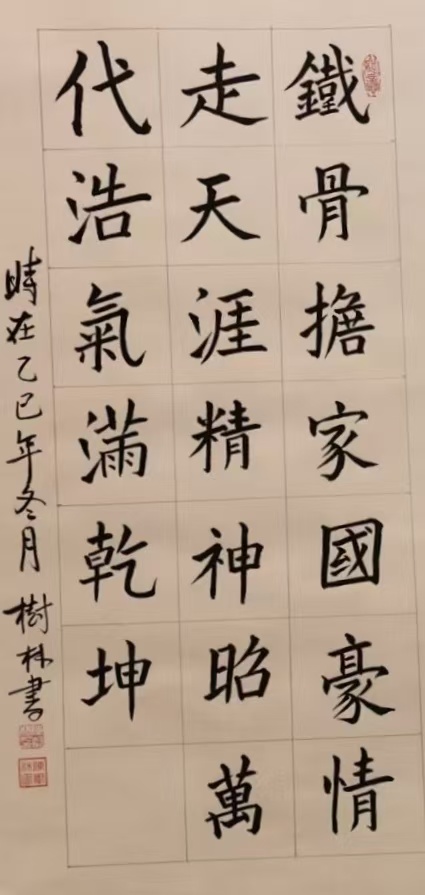 鐵骨擔家國豪情
走天涯精神昭萬
代浩氣滿乾坤
時在乙巳年冬月樹林書